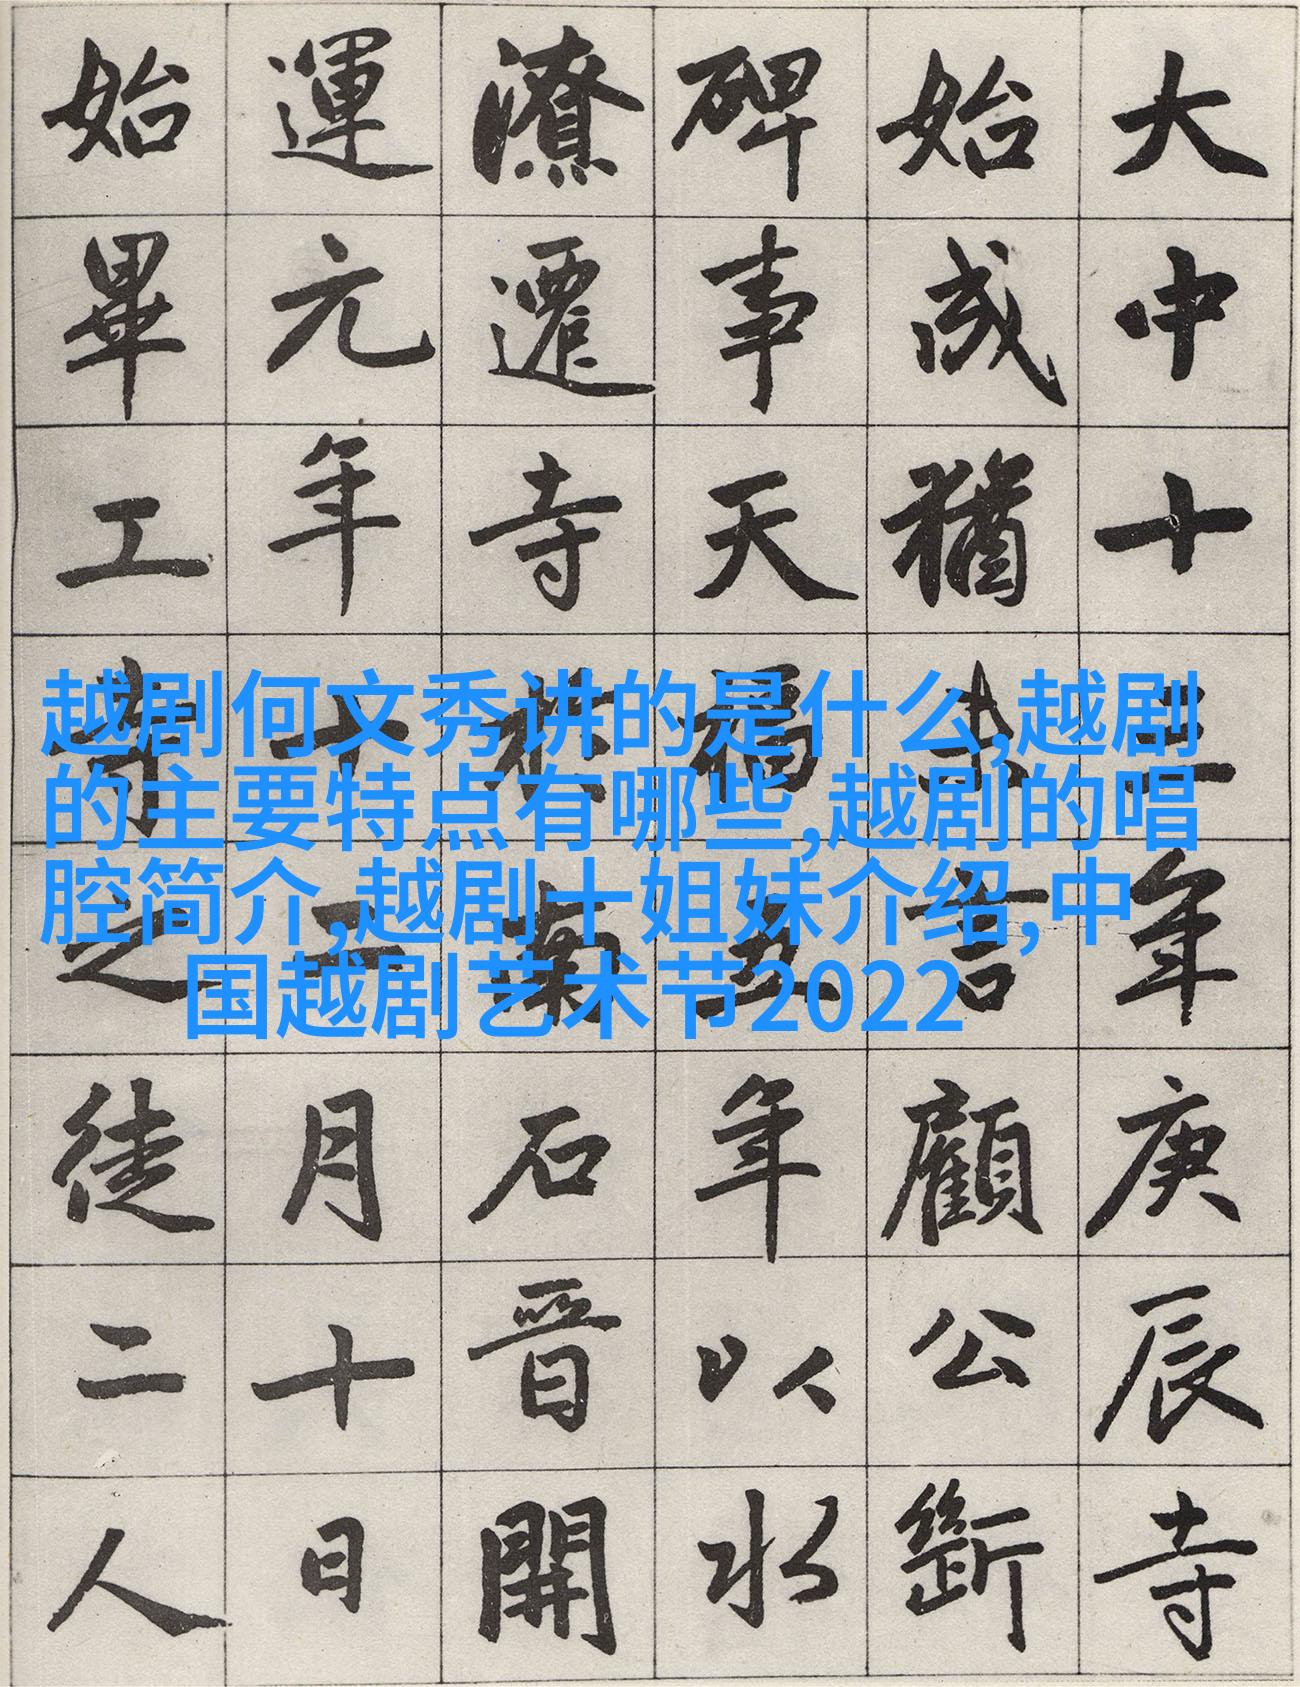 大中十三年庚辰寺
始成猶未言顧公斲
碑事天福五年以水
潦遷寺南石晉開
運元年十二月十日
始畢工寺之徒二人
越剧何文秀讲的是什么,越剧
的主要特点有哪些,越剧的唱
腔简介,越剧十姐妹介绍,中
国越剧艺术节2022